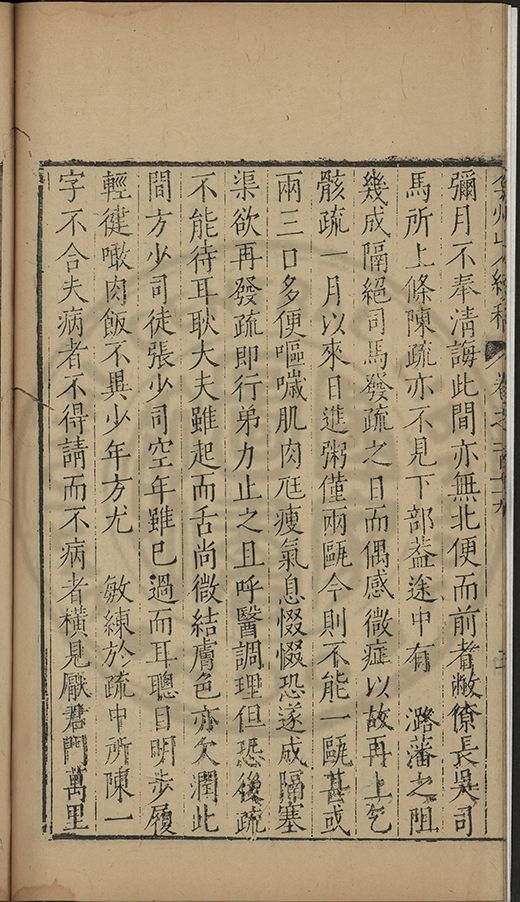 彌月不奉清誨此間亦無北便而前者敝僚長吳司
馬所上條陳疏亦不見下部蓋途中有　潞藩之阻
幾成隔絕司馬發疏之日而偶感微症以故再上乞
骸疏一月以來日進粥僅兩甌今則不能一甌甚或
兩三口多便嘔噦肌肉尫瘦氣息惙惙恐遂成隔塞
渠欲再發疏即行弟力止之且呼醫調理但恐後疏
不能待耳耿大夫雖起而舌尚微結膚色亦欠潤此
間方少司徒張少司空年雖已過而耳聰目明步履
輕健噉肉飯不異少年方尤　敏練於疏中所陳一
字不合夫病者不得請而不病者橫見厭君門萬里